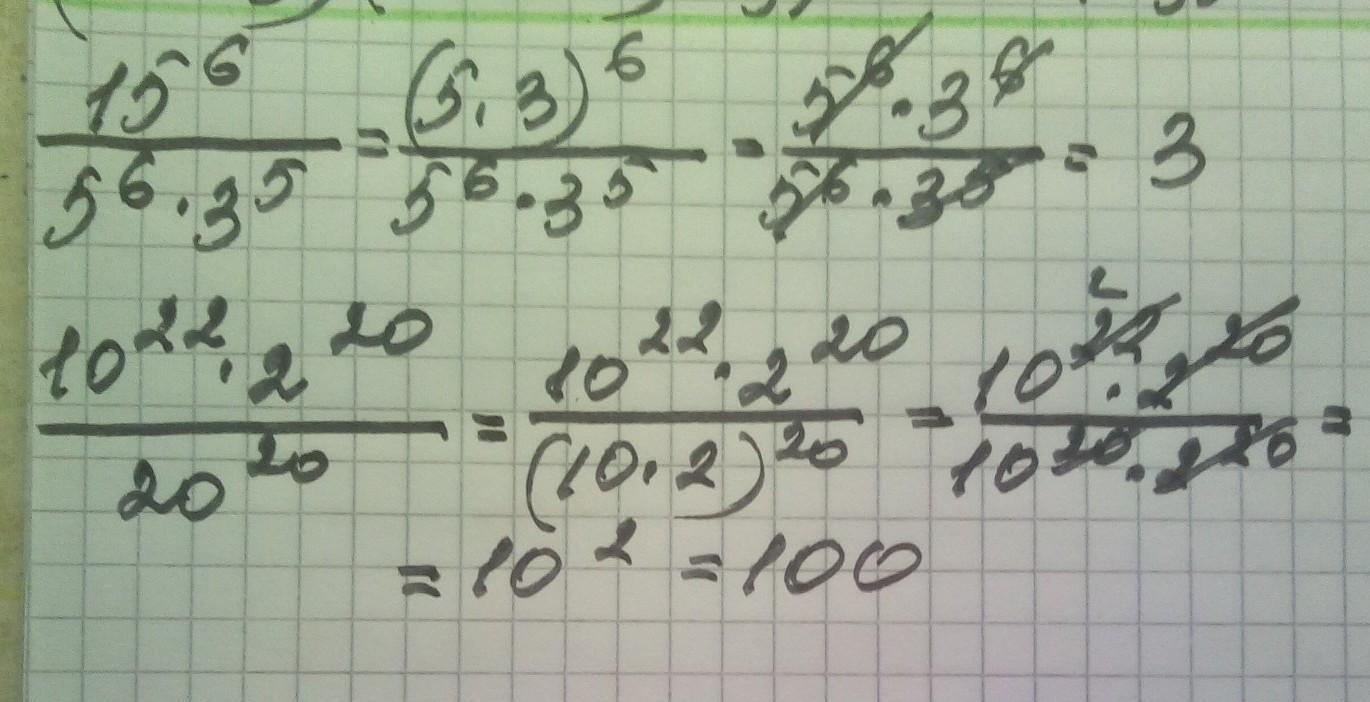 15^6 / (5^6 · 3^5) = (5 · 3)^6 / (5^6 · 3^5) = (5^6 · 3^6) / (5^6 · 3^5) = 3
(10^22 · 2^20) / 20^20 = (10^22 · 2^20) / (10 · 2)^20 = (10^22 2 · 2^20) / (10^20 · 2^20) =
= 10^2 = 100